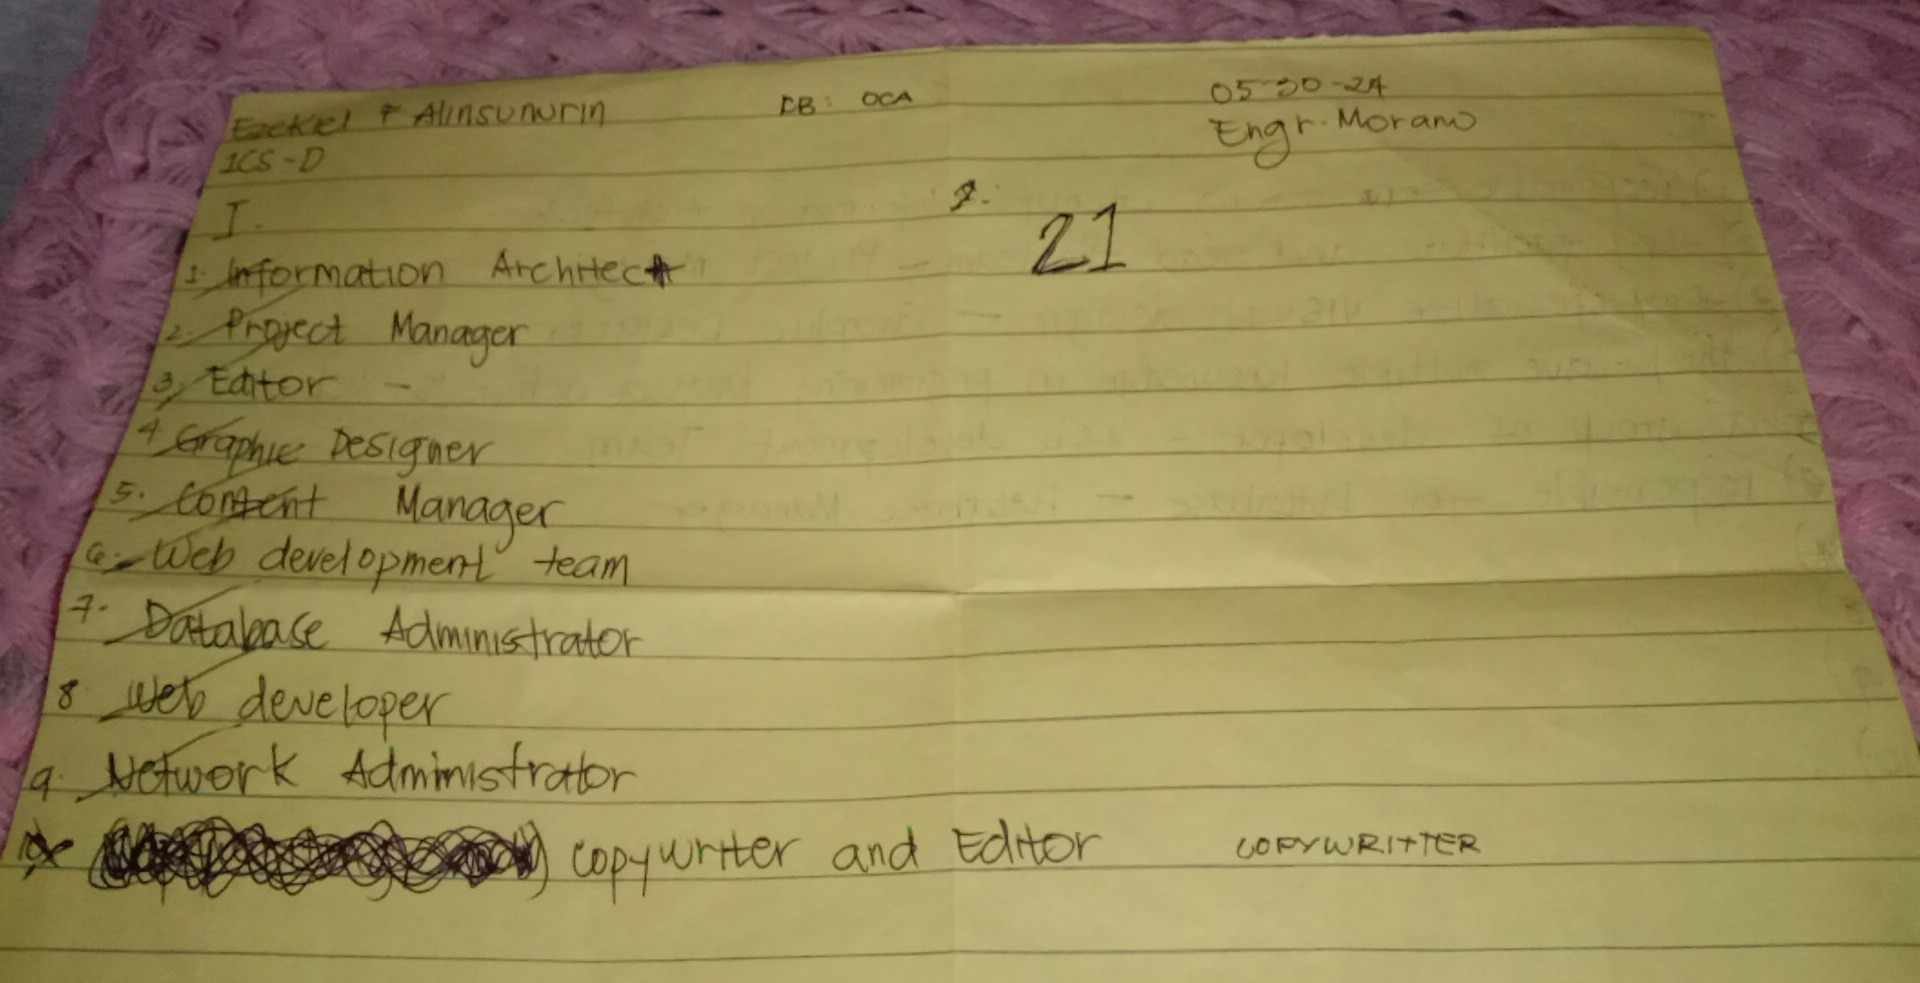 Ezekiel F Alinsunurin CB: OCA 05-30-24
1CS-D Engr. Morano
I.
21
1. Information Architect
2. Project Manager
3. Editor -
4 Graphic Designer
5. Content Manager
6. Web development team
7. Database Administrator
8 Web developer
9. Network Administrator
10 Copywriter and Editor COPYWRITTER